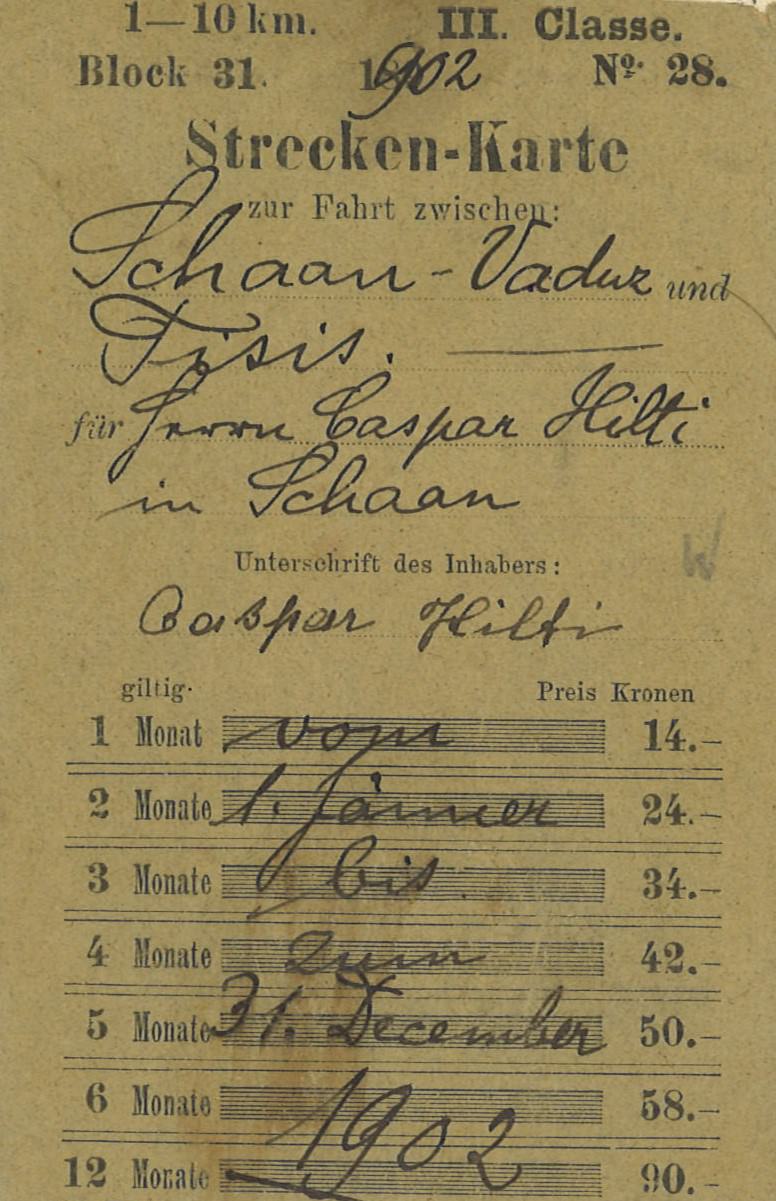 1—10 km. III. Classe.
Block 31. 1902 No. 28.
Strecken-Karte
zur Fahrt zwischen:
Schaan-Vaduz und
Tisis.
für Herrn Caspar Hilti
in Schaan
Unterschrift des Inhabers:
Caspar Hilti
giltig. Preis Kronen
1 Monat vom 14.–
2 Monate 1. Jänner 24.–
3 Monate bis 34.–
4 Monate zum 42.–
5 Monate 31. December 50.–
6 Monate 1902 58.–
12 Monate 90.–